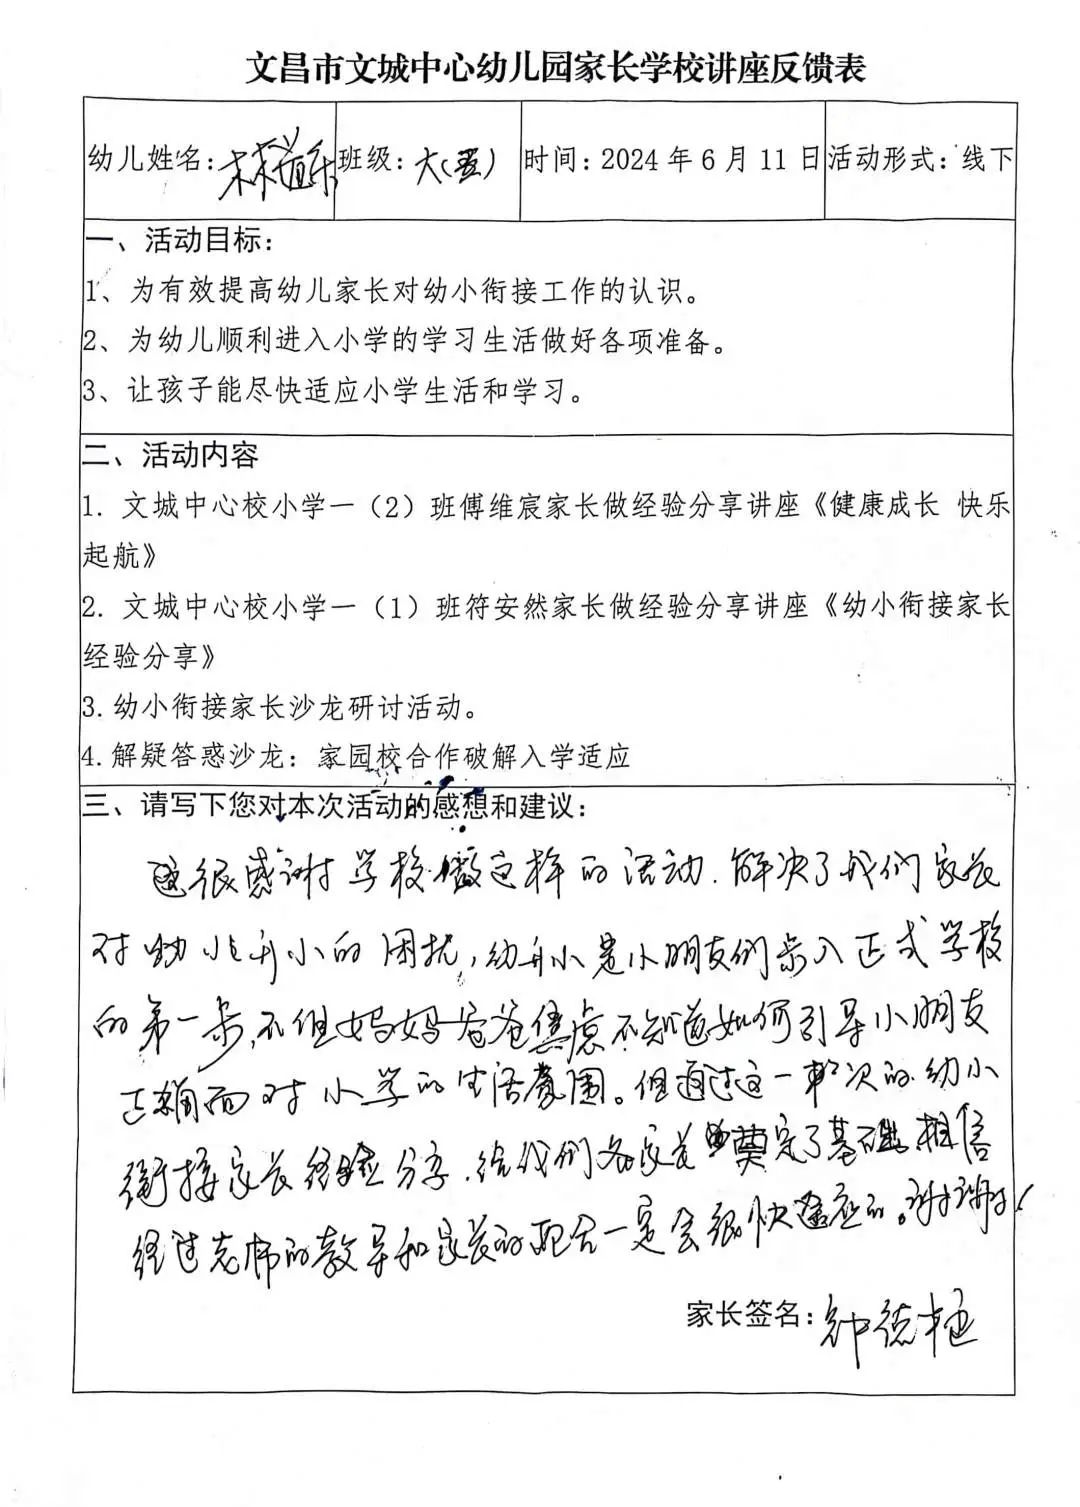 文昌市文城中心幼儿园家长学校讲座反馈表
幼儿姓名： 班级：大（五） 时间：2024年6月11日 活动形式：线下
一、活动目标：
1、为有效提高幼儿家长对幼小衔接工作的认识。
2、为幼儿顺利进入小学的学习生活做好各项准备。
3、让孩子能尽快适应小学生活和学习。
二、活动内容
1. 文城中心校小学一（2）班傅维宸家长做经验分享讲座《健康成长 快乐
起航》
2. 文城中心校小学一（1）班符安然家长做经验分享讲座《幼小衔接家长
经验分享》
3.幼小衔接家长沙龙研讨活动。
4.解疑答惑沙龙：家园校合作破解入学适应
三、请写下您对本次活动的感想和建议：
很感谢学校做这样的活动．解决了我们家长
对幼儿升小的困扰，幼升小是小朋友们步入正式学校
的第一步，不但妈妈爸爸焦虑不知道如何引导小朋友
正确面对小学的生活氛围。但通过这一次的幼小
衔接家长经验分享．给我们各家长奠定了基础．相信
经过老师的教导和家长的配合一定会很快适应的。谢谢！
家长签名：钟德